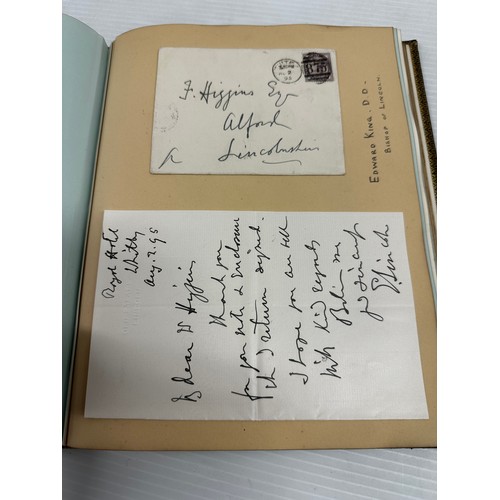 F. Higgins Esq
Alford
Lincolnshire
EDWARD KING. D.D.
BISHOP OF LINCOLN
Royal Hotel
Whitby
Aug. 2. 95
My dear Mr Higgins
Thank you
for your note & enclosure
wh I return signed.
I hope you are well
With kind regards
Believe me
yrs sincerely
E. Lincoln